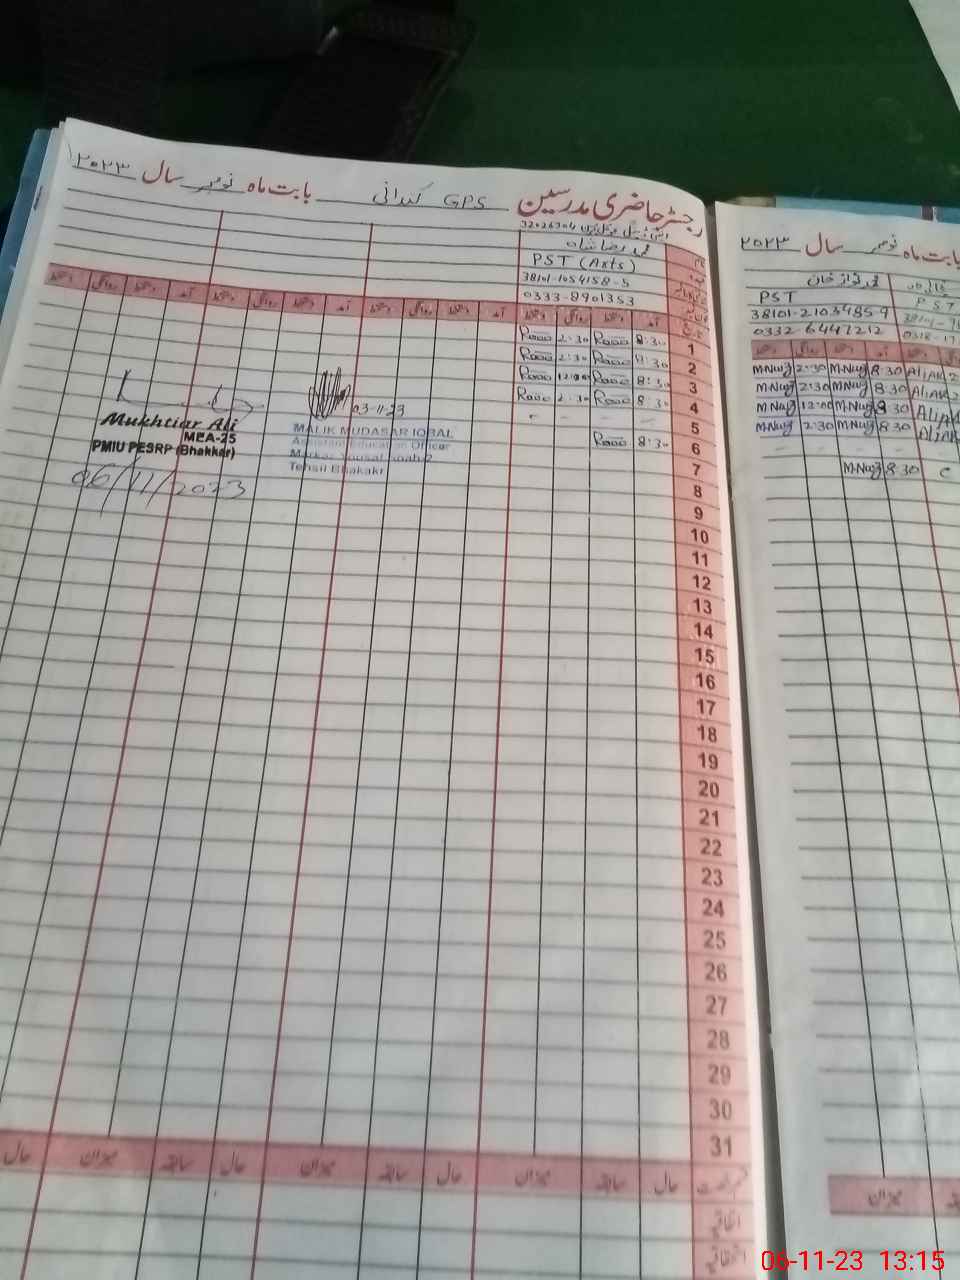 رجسٹر حاضری مدرسین GPS بابت ماہ نومبر سال ۲۰۲۳
محمد رضا شاہ
PST (Arts)
38101-1054158-5
0333-8901353
آمد دستخط روانگی دستخط آمد دستخط روانگی دستخط آمد دستخط روانگی دستخط
1 8:30 2:30
2 8:30 2:30
3 8:30 12:00
4 8:30 2:30
5 - -
6 8:30
7
8
9
10
11
12
13
14
15
16
17
18
19
20
21
22
23
24
25
26
27
28
29
30
31
03-11-23
MALIK MUDASAR IQBAL
Assistant Education Officer
Tehsil Bhakakr
Mukhtiar Ali
MEA-25
PMIU PESRP (Bhakkar)
06/11/2023
حال سابقہ میزان حال سابقہ میزان حال سابقہ میزان حال
اتفاقیہ
بابت ماہ نومبر سال ۲۰۲۳
محمد نواز خان
PST
PST
38101-2103485-9
0332 6447212
دستخط روانگی دستخط آمد دستخط
M.Nwz 2:30 M.Nwz 8:30
M.Nwz 2:30 M.Nwz 8:30
M.Nwz 12:00 M.Nwz 8:30
M.Nwz 2:30 M.Nwz 8:30
M.Nwz 8:30
میزان
06-11-23 13:15